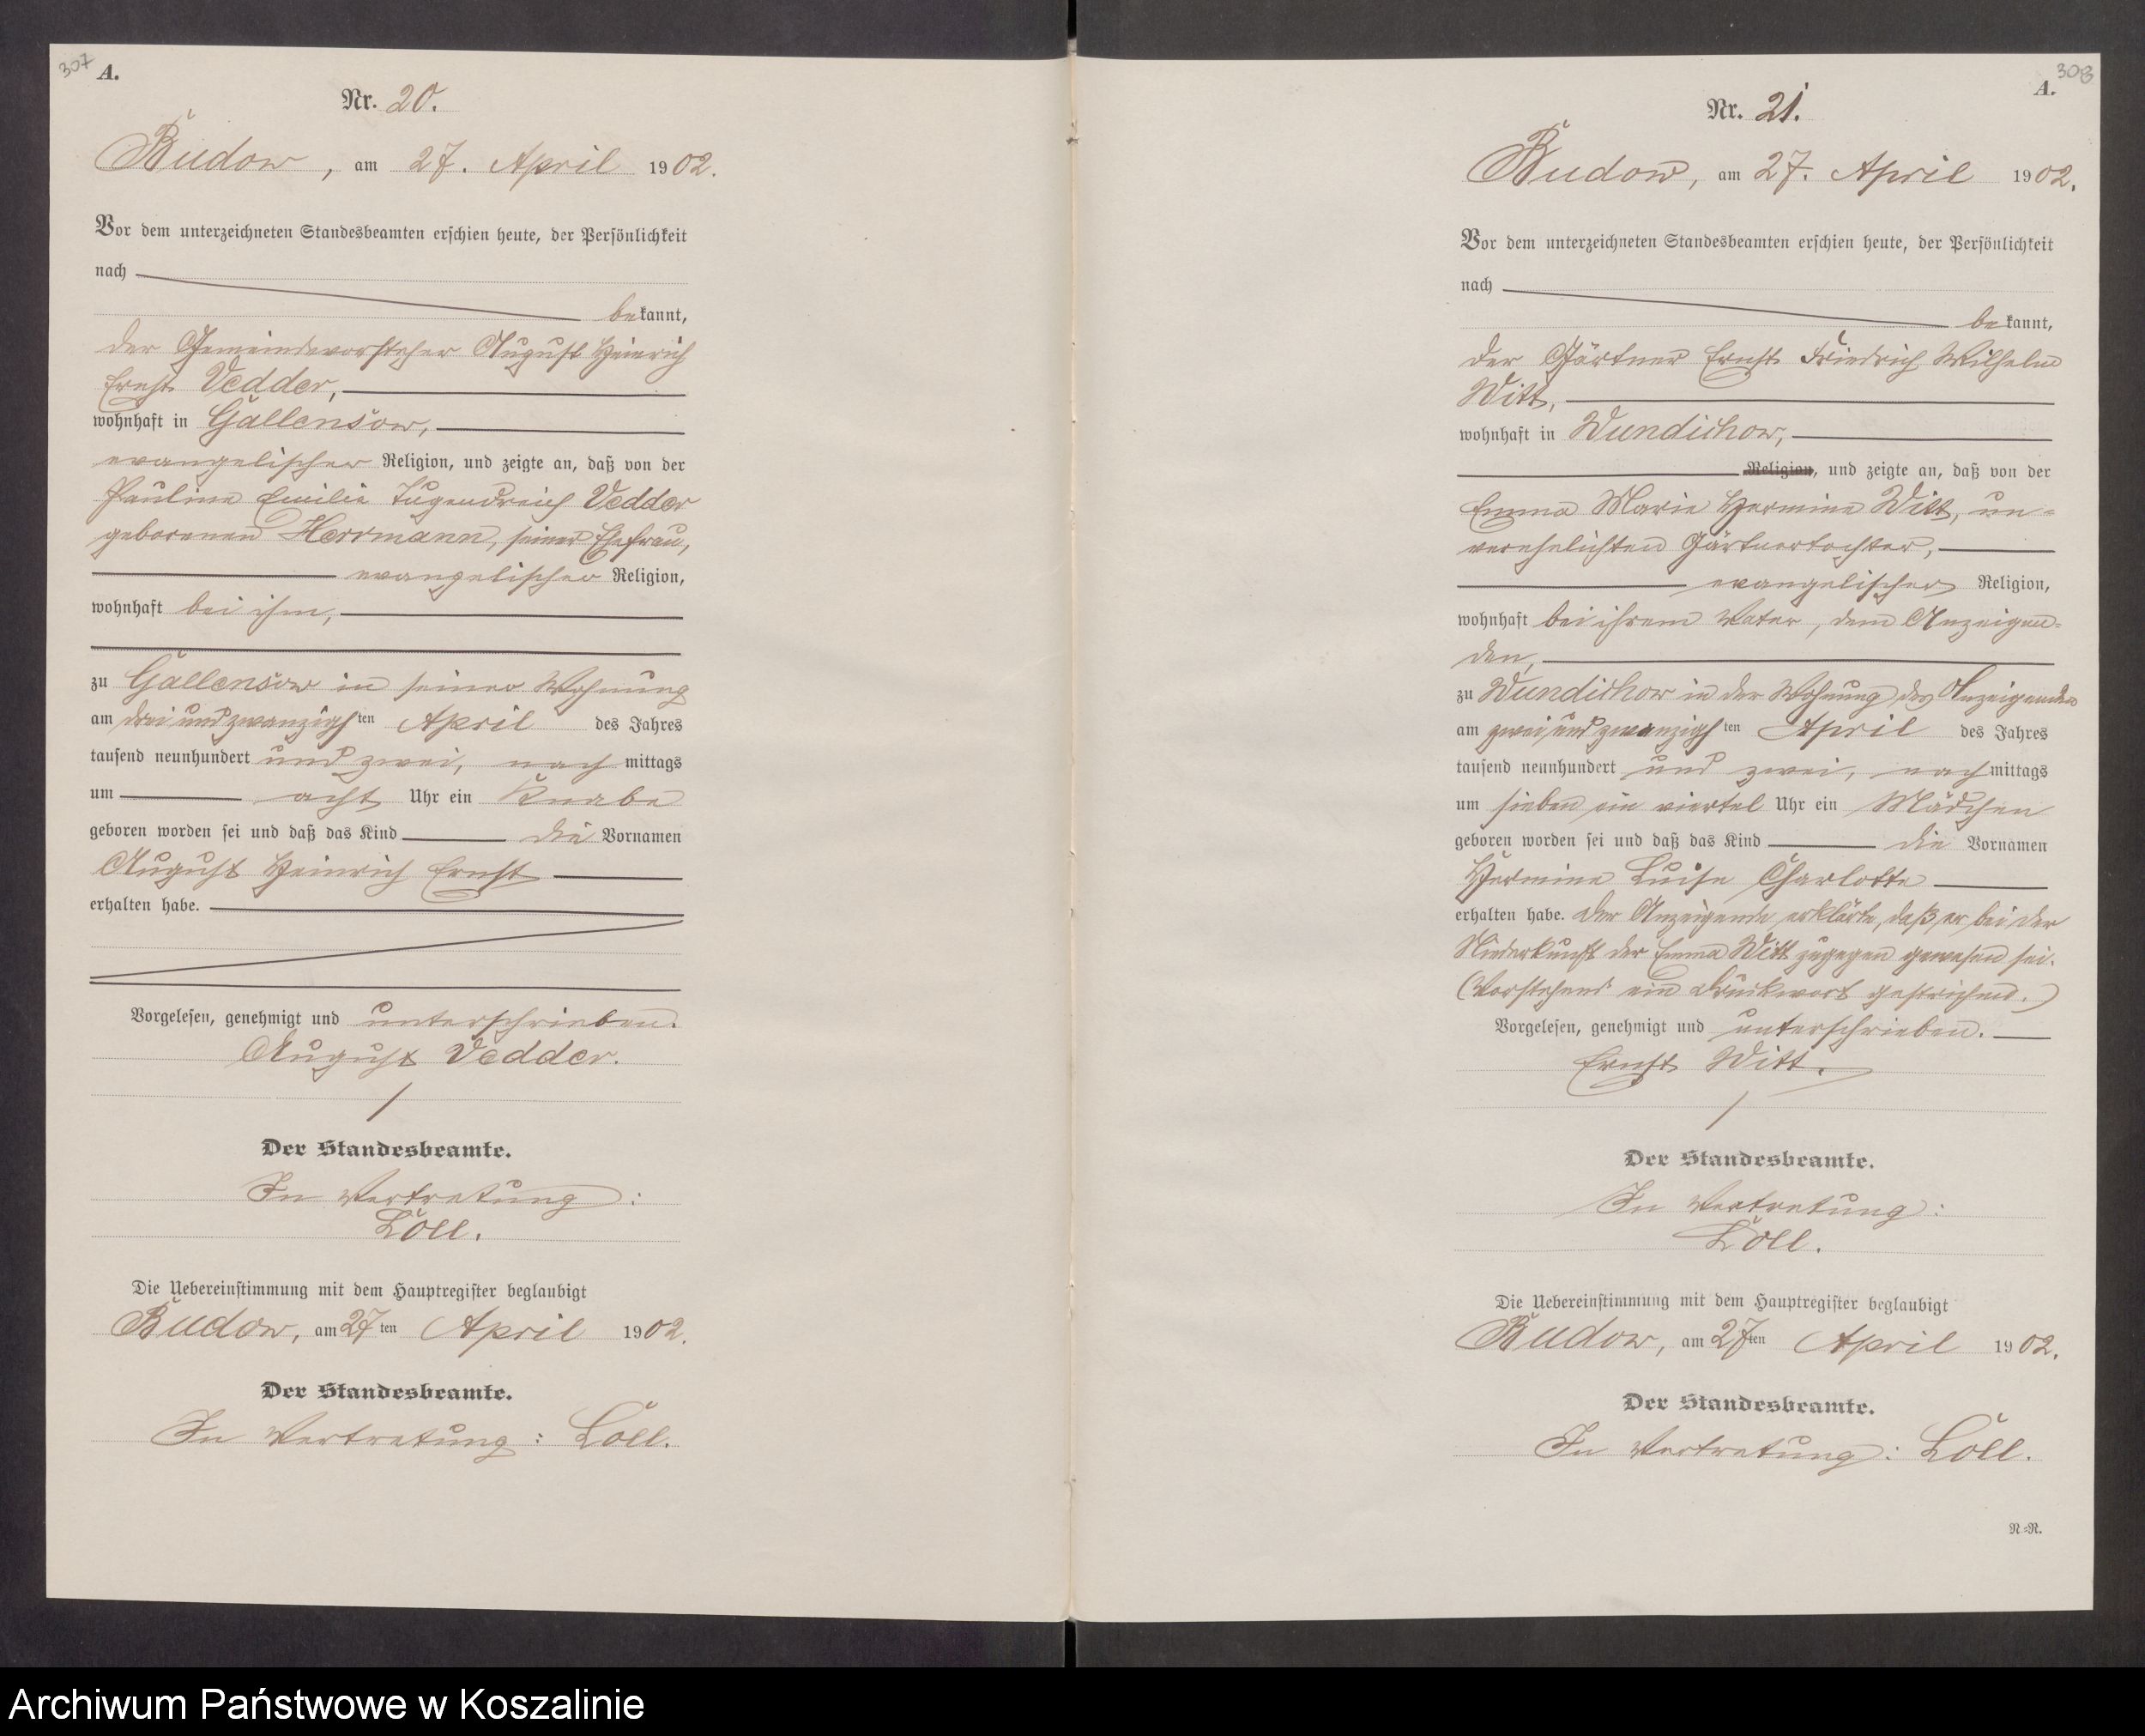 307 A.
Nr. 20.
Budow, am 27. April 1902.
Vor dem unterzeichneten Standesbeamten erschien heute, der Persönlichkeit
nach
bekannt,
der Gemeindevorsteher August Heinrich
Ernst Vedder,
wohnhaft in Gallensow,
evangelischer Religion, und zeigte an, daß von der
Pauline Emilie Tugendreich Vedder
geborenen Herrmann, seiner Ehefrau,
evangelischer Religion,
wohnhaft bei ihm,
zu Gallensow in seiner Wohnung
am drei und zwanzigsten April des Jahres
tausend neunhundert und zwei, nachmittags
um acht Uhr ein Knabe
geboren worden sei und daß das Kind die Vornamen
August Heinrich Ernst
erhalten habe.
Vorgelesen, genehmigt und unterschrieben.
August Vedder.
Der Standesbeamte.
In Vertretung:
Löll.
Die Uebereinstimmung mit dem Hauptregister beglaubigt
Budow, am 27ten April 1902.
Der Standesbeamte.
In Vertretung: Löll.
308
A.
Nr. 21.
Budow, am 27. April 1902.
Vor dem unterzeichneten Standesbeamten erschien heute, der Persönlichkeit
nach
bekannt,
der Gärtner Ernst Friedrich Wilhelm
Witt,
wohnhaft in Wundichow,
Religion, und zeigte an, daß von der
Emma Marie Hermine Witt, un-
verehelichten Gärtnertochter,
evangelischer Religion,
wohnhaft bei ihrem Vater, dem Anzeigen-
den,
zu Wundichow in der Wohnung des Anzeigenden
am zwei und zwanzigsten April des Jahres
tausend neunhundert und zwei, nachmittags
um sieben ein viertel Uhr ein Mädchen
geboren worden sei und daß das Kind die Vornamen
Hermine Luise Charlotte
erhalten habe. Der Anzeigende erklärte, daß er bei der
Niederkunft der Emma Witt zugegen gewesen sei.
(Vorstehend ein Druckwort gestrichen.)
Vorgelesen, genehmigt und unterschrieben.
Ernst Witt.
Der Standesbeamte.
In Vertretung:
Löll.
Die Uebereinstimmung mit dem Hauptregister beglaubigt
Budow, am 27ten April 1902.
Der Standesbeamte.
In Vertretung: Löll.
N=R.
Archiwum Państwowe w Koszalinie